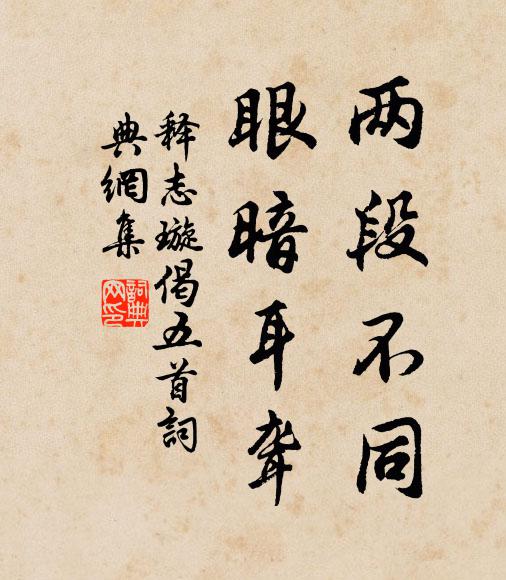 两段不同
眼暗耳聋
释志璇偈五首詞
典網集
詞典网印